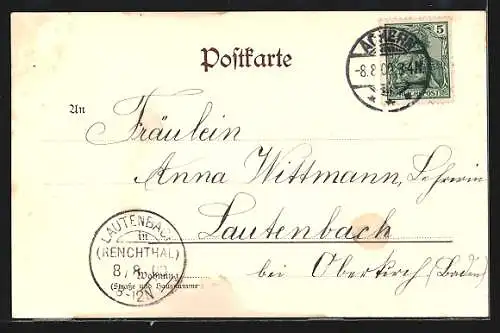 Postkarte
ACHERN
-8.8.02.3-4N.
5
An
Fräulein
Anna Wittmann, Lehrerin
Lautenbach
bei Oberkirch (Baden)
LAUTENBACH
in
(RENCHTHAL)
8/8.
-12N
Wohnung
(Straße und Hausnummer)